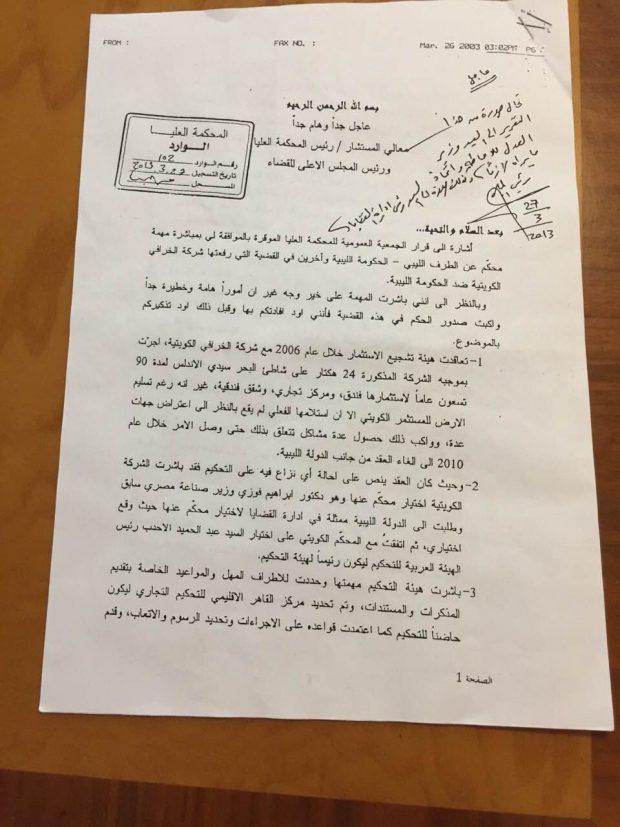 FROM : FAX NO. : Mar. 26 2003 03:02PM P6
عاجل
بسم الله الرحمن الرحيم
عاجل جداً وهام جداً
معالي المستشار / رئيس المحكمة العليا
ورئيس المجلس الاعلى للقضاء
المحكمة العليا
الوارد
رقم الوارد 102
تاريخ التسجيل
المسجل
تحال صورة من هذا
التقرير الى السيد وزير
العدل
27
3
2013
بعد السلام والتحية...
أشارة الى قرار الجمعية العمومية للمحكمة العليا الموقرة بالموافقة لي بمباشرة مهمة
محكّم عن الطرف الليبي – الحكومة الليبية وآخرين في القضية التي رفعتها شركة الخرافي
الكويتية ضد الحكومة الليبية.
وبالنظر الى انني باشرت المهمة على خير وجه غير ان أموراً هامة وخطيرة جداً
واكبت صدور الحكم في هذه القضية فأنني اود افادتكم بها وقبل ذلك اود تذكيركم
بالموضوع.
1– تعاقدت هيئة تشجيع الاستثمار خلال عام 2006 مع شركة الخرافي الكويتية، اجرّت
بموجبه الشركة المذكورة 24 هكتار على شاطئ البحر سيدي الاندلس لمدة 90
تسعون عاماً لاستثمارها فندق، ومركز تجاري، وشقق فندقية، غير انه رغم تسليم
الارض للمستثمر الكويتي الا ان استلامها الفعلي لم يقع بالنظر الى اعتراض جهات
عدة، وواكب ذلك حصول عدة مشاكل تتعلق بذلك حتى وصل الامر خلال عام
2010 الى الغاء العقد من جانب الدولة الليبية.
2– وحيث كان العقد ينص على احالة أي نزاع فيه على التحكيم فقد باشرت الشركة
الكويتية اختيار محكّم عنها وهو دكتور ابراهيم فوزي وزير صناعة مصري سابق
وطلبت الى الدولة الليبية ممثلة في ادارة القضايا لاختيار محكّم عنها حيث وقع
اختياري، ثم اتفقتُ مع المحكّم الكويتي على اختيار السيد عبد الحميد الاحدب رئيس
الهيئة العربية للتحكيم ليكون رئيساً لهيئة التحكيم.
3– باشرت هيئة التحكيم مهمتها وحددت للاطراف المهل والمواعيد الخاصة بتقديم
المذكرات والمستندات، وتم تحديد مركز القاهر الاقليمي للتحكيم التجاري ليكون
حاضناً للتحكيم كما اعتمدت قواعده على الاجراءات وتحديد الرسوم والاتعاب، وقدم
الصفحة 1